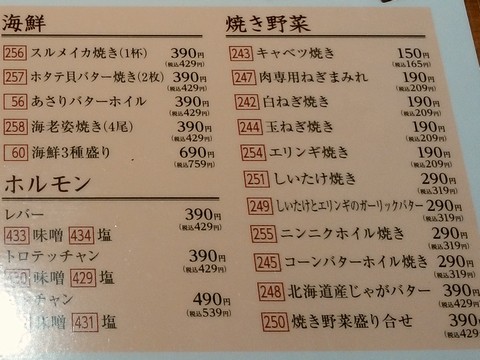 海鮮
256 スルメイカ焼き(1杯) 390円
(税込429円)
257 ホタテ貝バター焼き(2枚) 390円
(税込429円)
56 あさりバターホイル 390円
(税込429円)
258 海老姿焼き(4尾) 390円
(税込429円)
60 海鮮3種盛り 690円
(税込759円)
ホルモン
レバー 390円
(税込429円)
433 味噌 434 塩
トロテッチャン 390円
(税込429円)
味噌 429 塩
チャン 490円
(税込539円)
味噌 431 塩
焼き野菜
243 キャベツ焼き 150円
(税込165円)
247 肉専用ねぎまみれ 190円
(税込209円)
242 白ねぎ焼き 190円
(税込209円)
244 玉ねぎ焼き 190円
(税込209円)
254 エリンギ焼き 190円
(税込209円)
251 しいたけ焼き 290円
(税込319円)
249 しいたけとエリンギのガーリックバター 290円
(税込319円)
255 ニンニクホイル焼き 290円
(税込319円)
245 コーンバターホイル焼き 290円
(税込319円)
248 北海道産じゃがバター 390円
(税込429
250 焼き野菜盛り合せ 390
(税込429